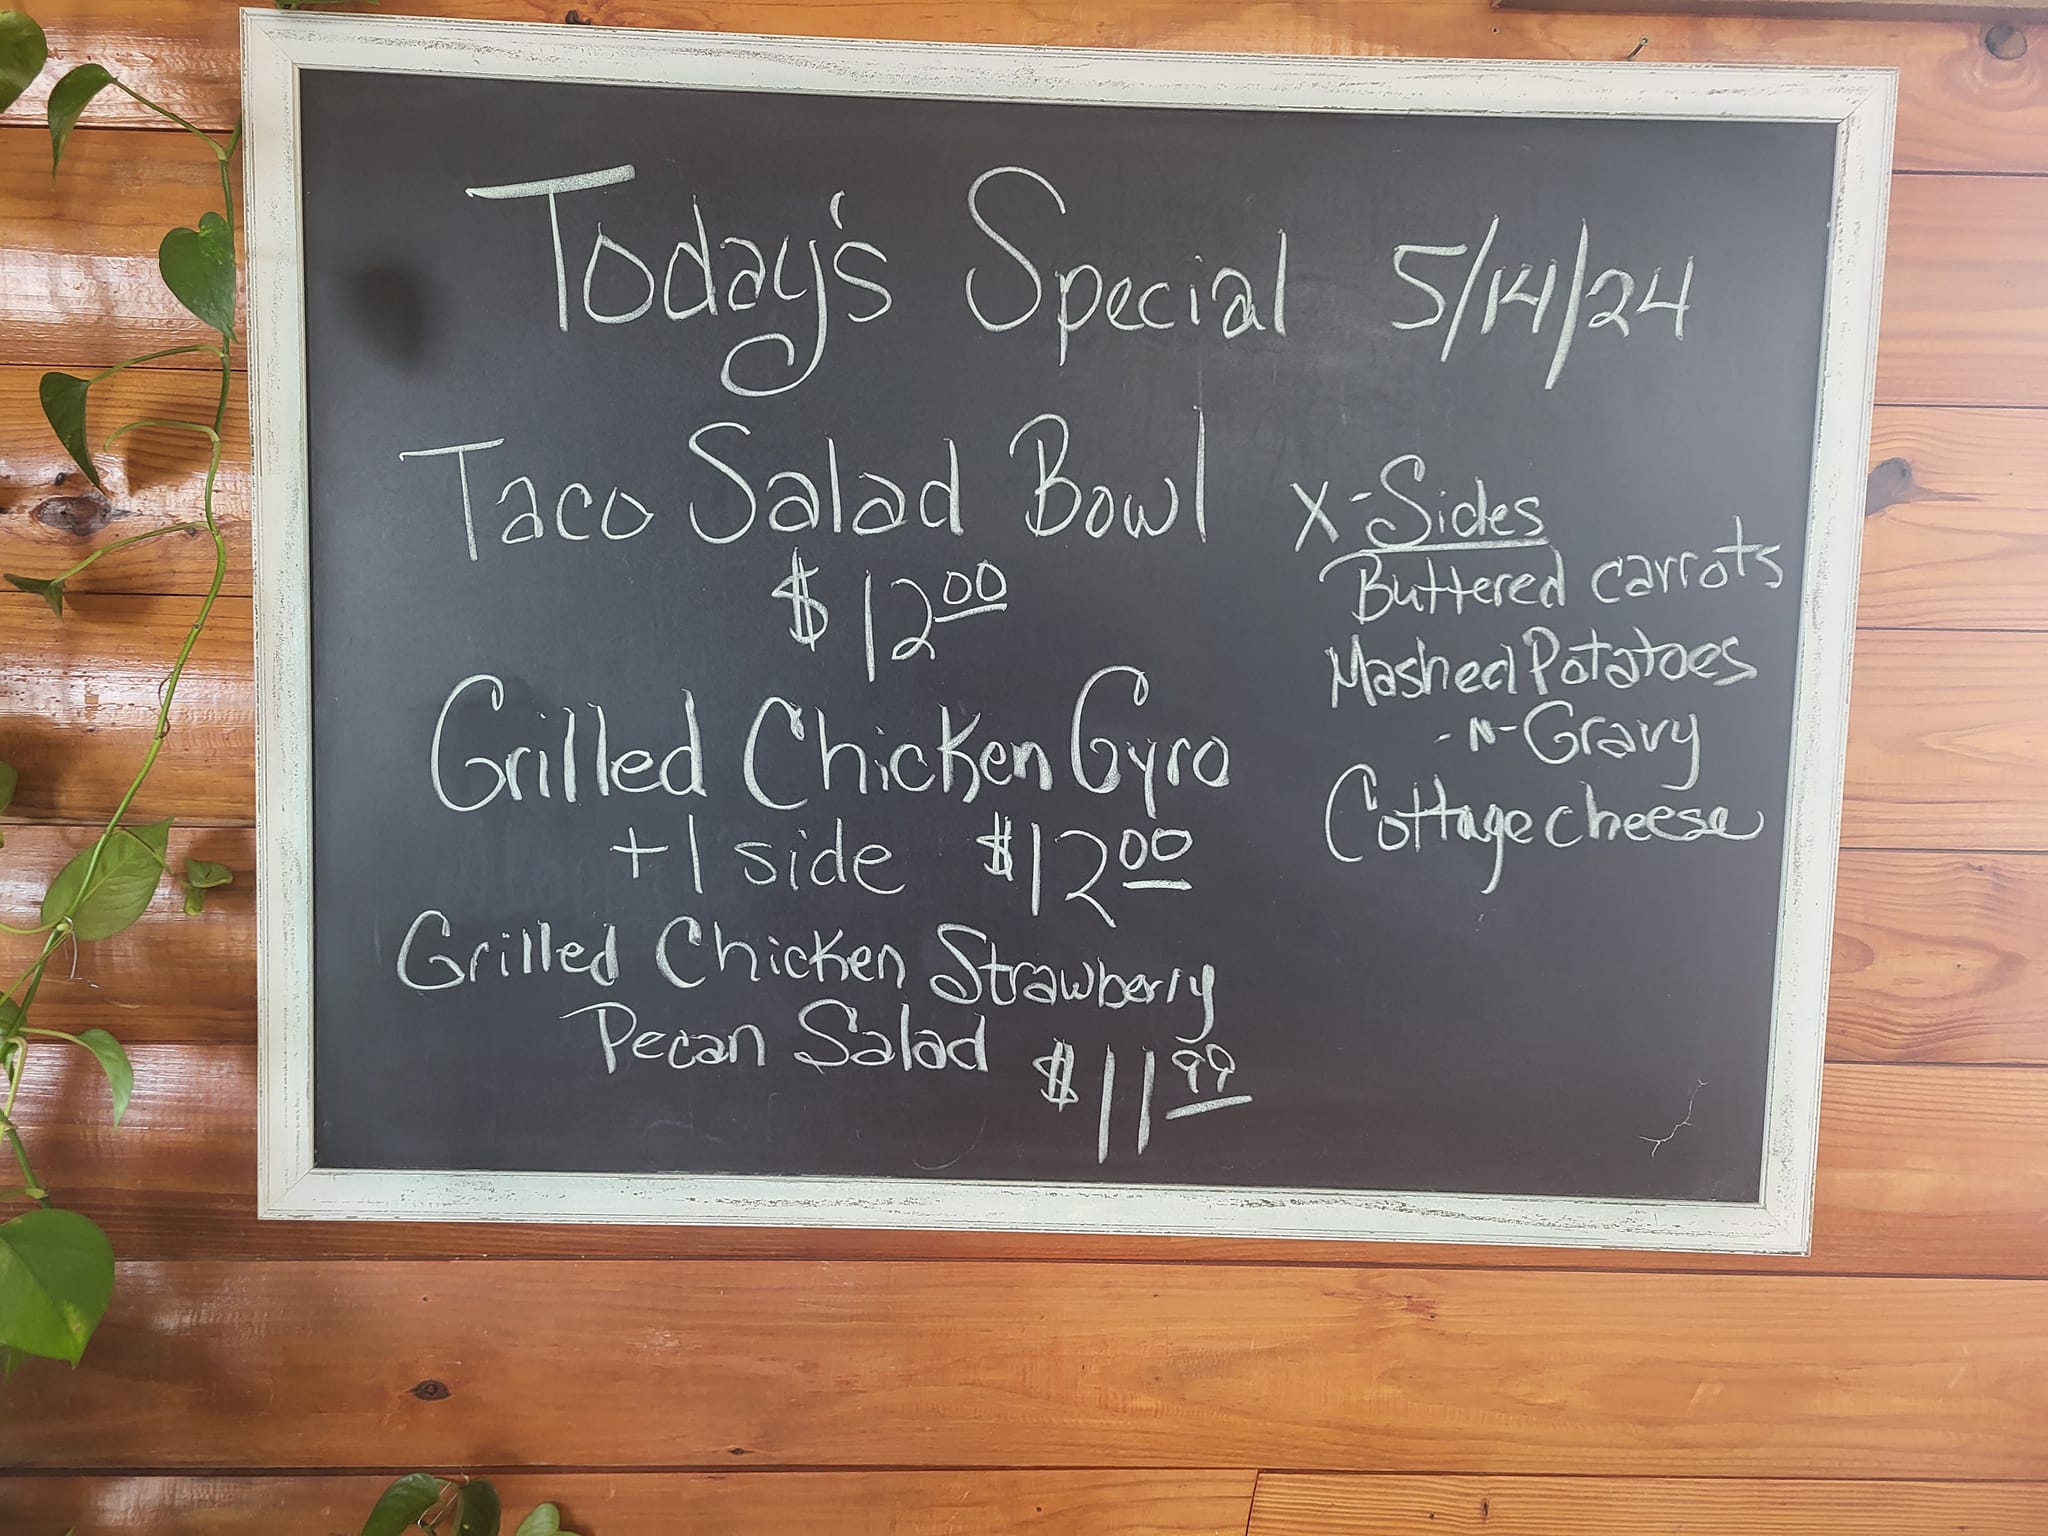 Today's Special 5/14/24
Taco Salad Bowl
$12.00
Grilled Chicken Gyro
+1 side $12.00
Grilled Chicken Strawberry
Pecan Salad $11.99
X-Sides
Buttered carrots
Mashed Potatoes
-n-Gravy
Cottage cheese